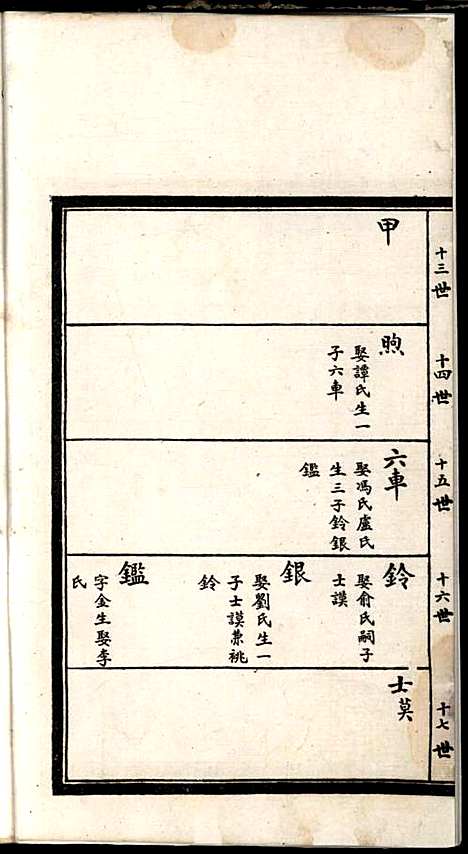 十三世
甲
十四世
煦
娶譚氏生一
子六車
十五世
六車
娶馮氏盧氏
生三子鈴銀
鑑
十六世
鈴
娶俞氏嗣子
士謨
銀
娶劉氏生一
子士謨兼祧
鈴
鑑
字金生娶李
氏
十七世
士莫